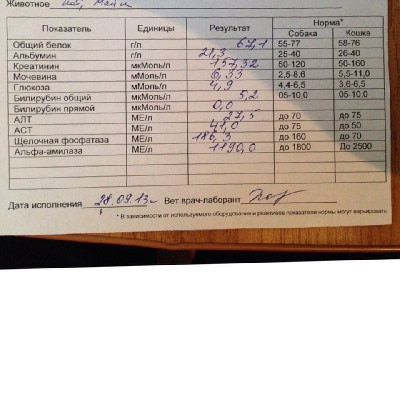 Животное
Показатель Единицы Результат Норма*
Собака Кошка
Общий белок г/л 67,1 55-77 58-76
Альбумин г/л 21,3 25-40 26-40
Креатинин мкМоль/л 157,32 50-120 50-160
Мочевина мМоль/л 6,33 2,5-8,6 5,5-11,0
Глюкоза мМоль/л 4,9 4,4-6,5 3,6-6,5
Билирубин общий мкМоль/л 5,2 05-10,0 05-10,0
Билирубин прямой мкМоль/л 0,0
АЛТ МЕ/л 27,5 до 70 до 75
АСТ МЕ/л 41,0 до 75 до 50
Щелочная фосфатаза МЕ/л 186,3 до 160 до 70
Альфа-амилаза МЕ/л 1190,0 до 1800 до 2500
Дата исполнения 28.09.13г Вет врач-лаборант
* В зависимости от используемого оборудования и реактивов показатели нормы могут варьировать